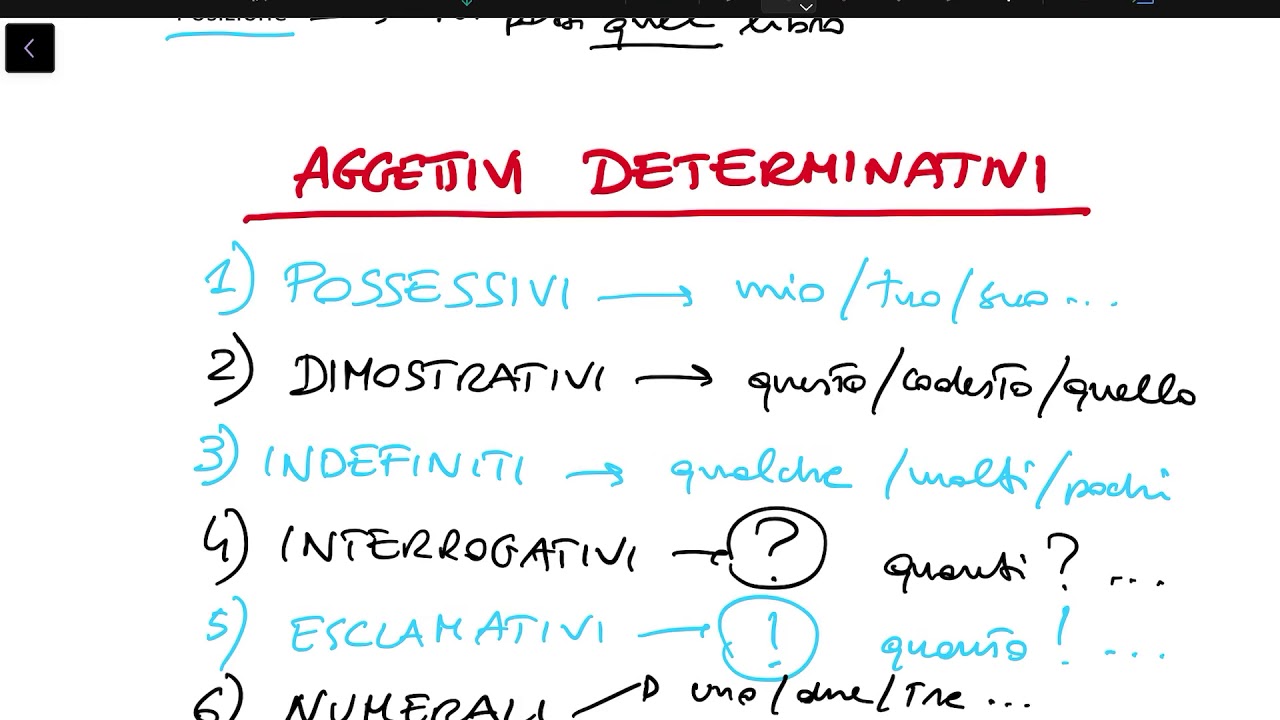 quel libro
AGGETTIVI DETERMINATIVI
1) POSSESSIVI → mio/tuo/suo...
2) DIMOSTRATIVI → questo/codesto/quello
3) INDEFINITI → qualche/molti/pochi
4) INTERROGATIVI → ? quanti? ...
5) ESCLAMATIVI → ! quanto! ...
6) NUMERALI → uno/due/tre...